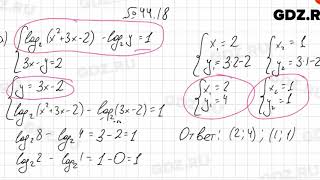 №44.18
GDZ.RU
б) { log₂(x²+3x-2) - log₂y = 1
3x - y = 2
{ y = 3x - 2
log₂(x²+3x-2) - log₂(3x-2) = 1
log₂8 - log₂4 = 3 - 2 = 1
log₂2 - log₂1 = 1 - 0 = 1
{ x₁ = 2
y₁ = 3·2-2
{ x₂ = 1
y₂ = 3·1-2
{ x₁ = 2
y₁ = 4
{ x₂ = 1
y₂ = 1
Ответ: (2;4); (1;1)